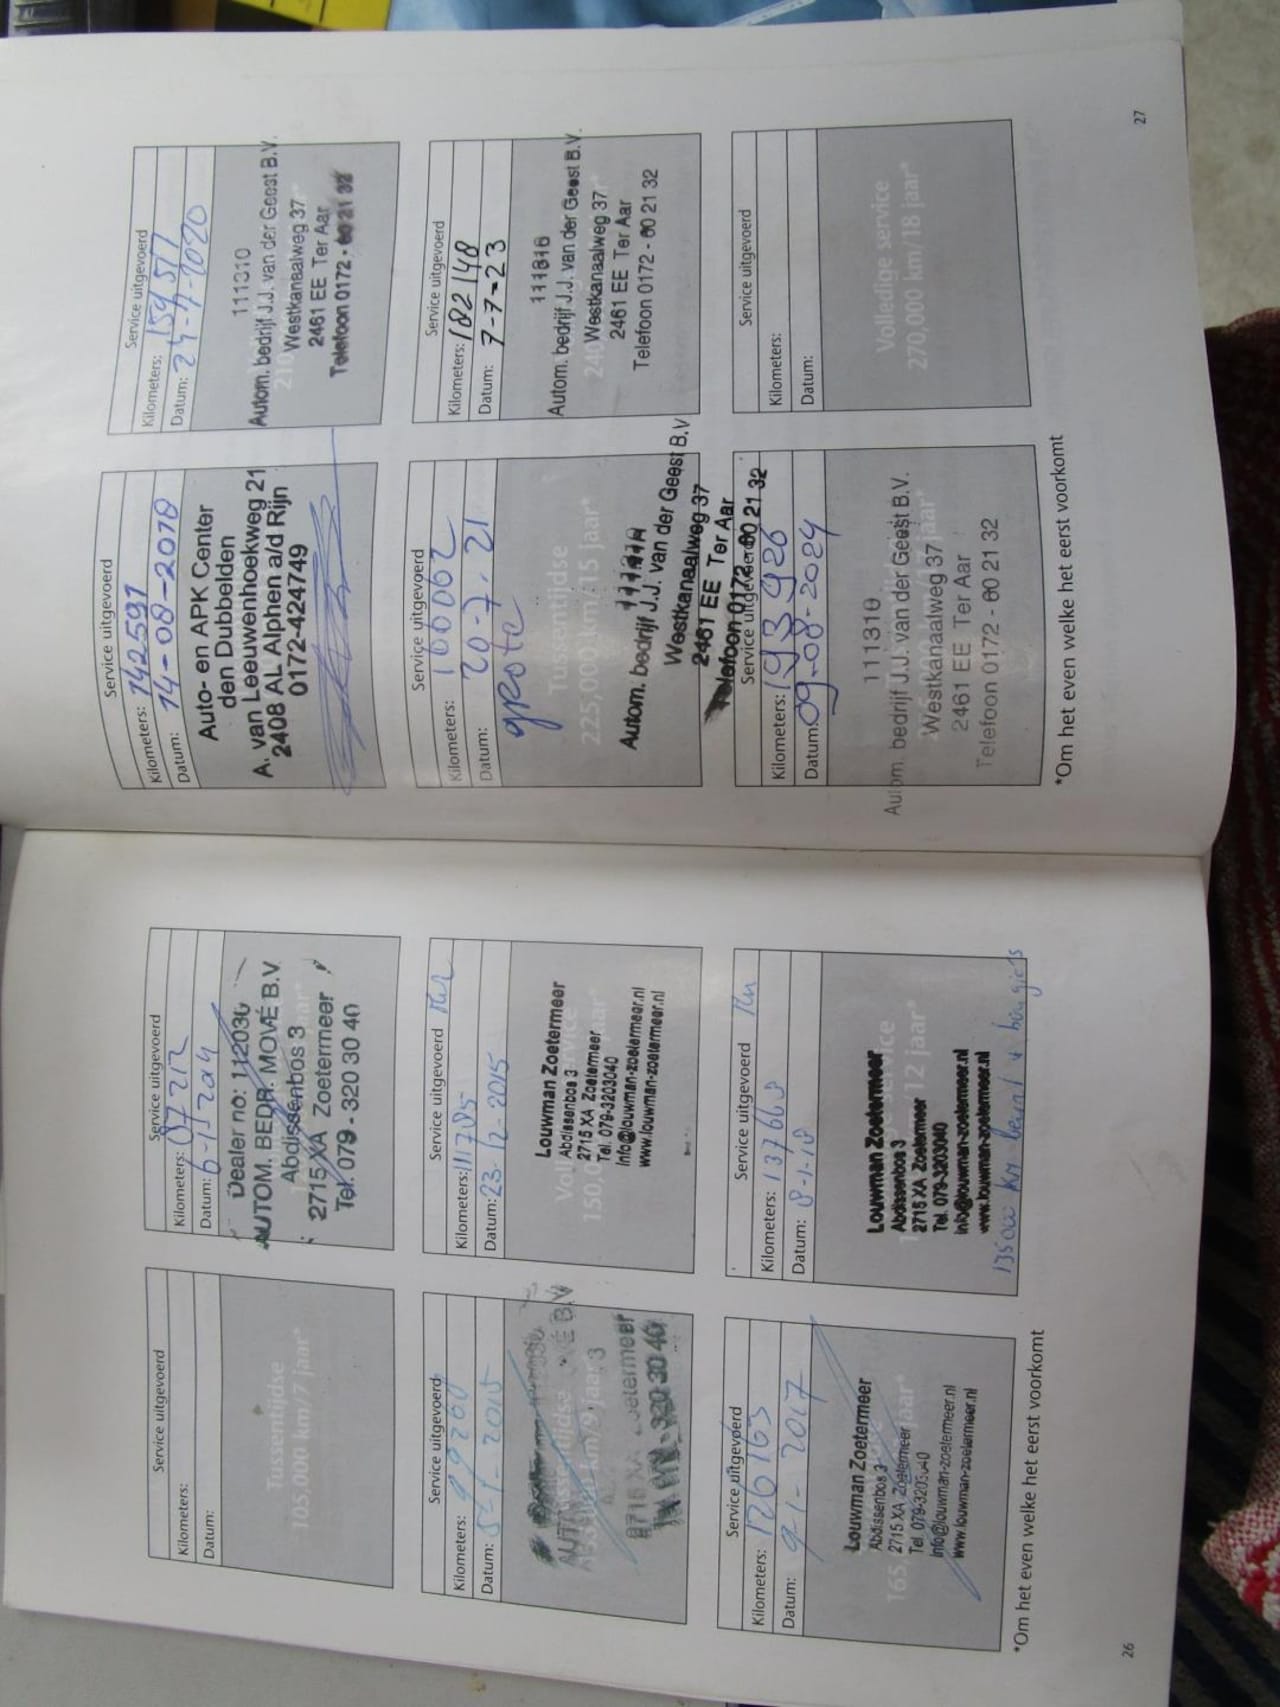 Service uitgevoerd
Kilometers:
Datum:
Tussentijdse
105,000 km/7 jaar*
Service uitgevoerd
Kilometers: 87212
Datum: 6-1-2014
Dealer no: 112036
AUTOM. BEDR. MOVÉ B.V.
Abdissenbos 3
2715 XA Zoetermeer
Tel. 079 - 320 30 40
Service uitgevoerd
Kilometers: 99260
Datum: 5-1-2015
Zoetermeer
320 30 40
Service uitgevoerd
Kilometers: 111785
Datum: 23-12-2015
Louwman Zoetermeer
Abdissenbos 3
2715 XA Zoetermeer
Tel. 079-3203040
info@louwman-zoetermeer.nl
www.louwman-zoetermeer.nl
Service uitgevoerd
Kilometers: 126163
Datum: 9-1-2017
Louwman Zoetermeer
Abdissenbos 3
2715 XA Zoetermeer
Tel. 079-3203040
info@louwman-zoetermeer.nl
www.louwman-zoetermeer.nl
Service uitgevoerd
Kilometers: 137668
Datum: 8-1-18
Louwman Zoetermeer
Abdissenbos 3
2715 XA Zoetermeer
Tel. 079-3203040
info@louwman-zoetermeer.nl
www.louwman-zoetermeer.nl
135000 km beurt + bougies
*Om het even welke het eerst voorkomt
26
Service uitgevoerd
Kilometers: 142591
Datum: 14-08-2018
Auto- en APK Center
den Dubbelden
A. van Leeuwenhoekweg 21
2408 AL Alphen a/d Rijn
0172-424749
Service uitgevoerd
Kilometers: 159517
Datum: 24-7-2020
111310
Autom. bedrijf J.J. van der Geest B.V.
Westkanaalweg 37
2461 EE Ter Aar
Telefoon 0172 - 60 21 32
Service uitgevoerd
Kilometers: 166062
Datum: 20-7-21
grote
Tussentijdse
225,000 km/15 jaar*
Autom. bedrijf J.J. van der Geest B.V
Westkanaalweg 37
2461 EE Ter Aar
Telefoon 0172 - 60 21 32
Service uitgevoerd
Kilometers: 182148
Datum: 7-7-23
111310
Autom. bedrijf J.J. van der Geest B.V.
Westkanaalweg 37
2461 EE Ter Aar
Telefoon 0172 - 60 21 32
Service uitgevoerd
Kilometers: 193926
Datum: 09-08-2024
111310
Autom. bedrijf J.J. van der Geest B.V.
Westkanaalweg 37
2461 EE Ter Aar
Telefoon 0172 - 60 21 32
Service uitgevoerd
Kilometers:
Datum:
Volledige service
270,000 km/18 jaar*
*Om het even welke het eerst voorkomt
27